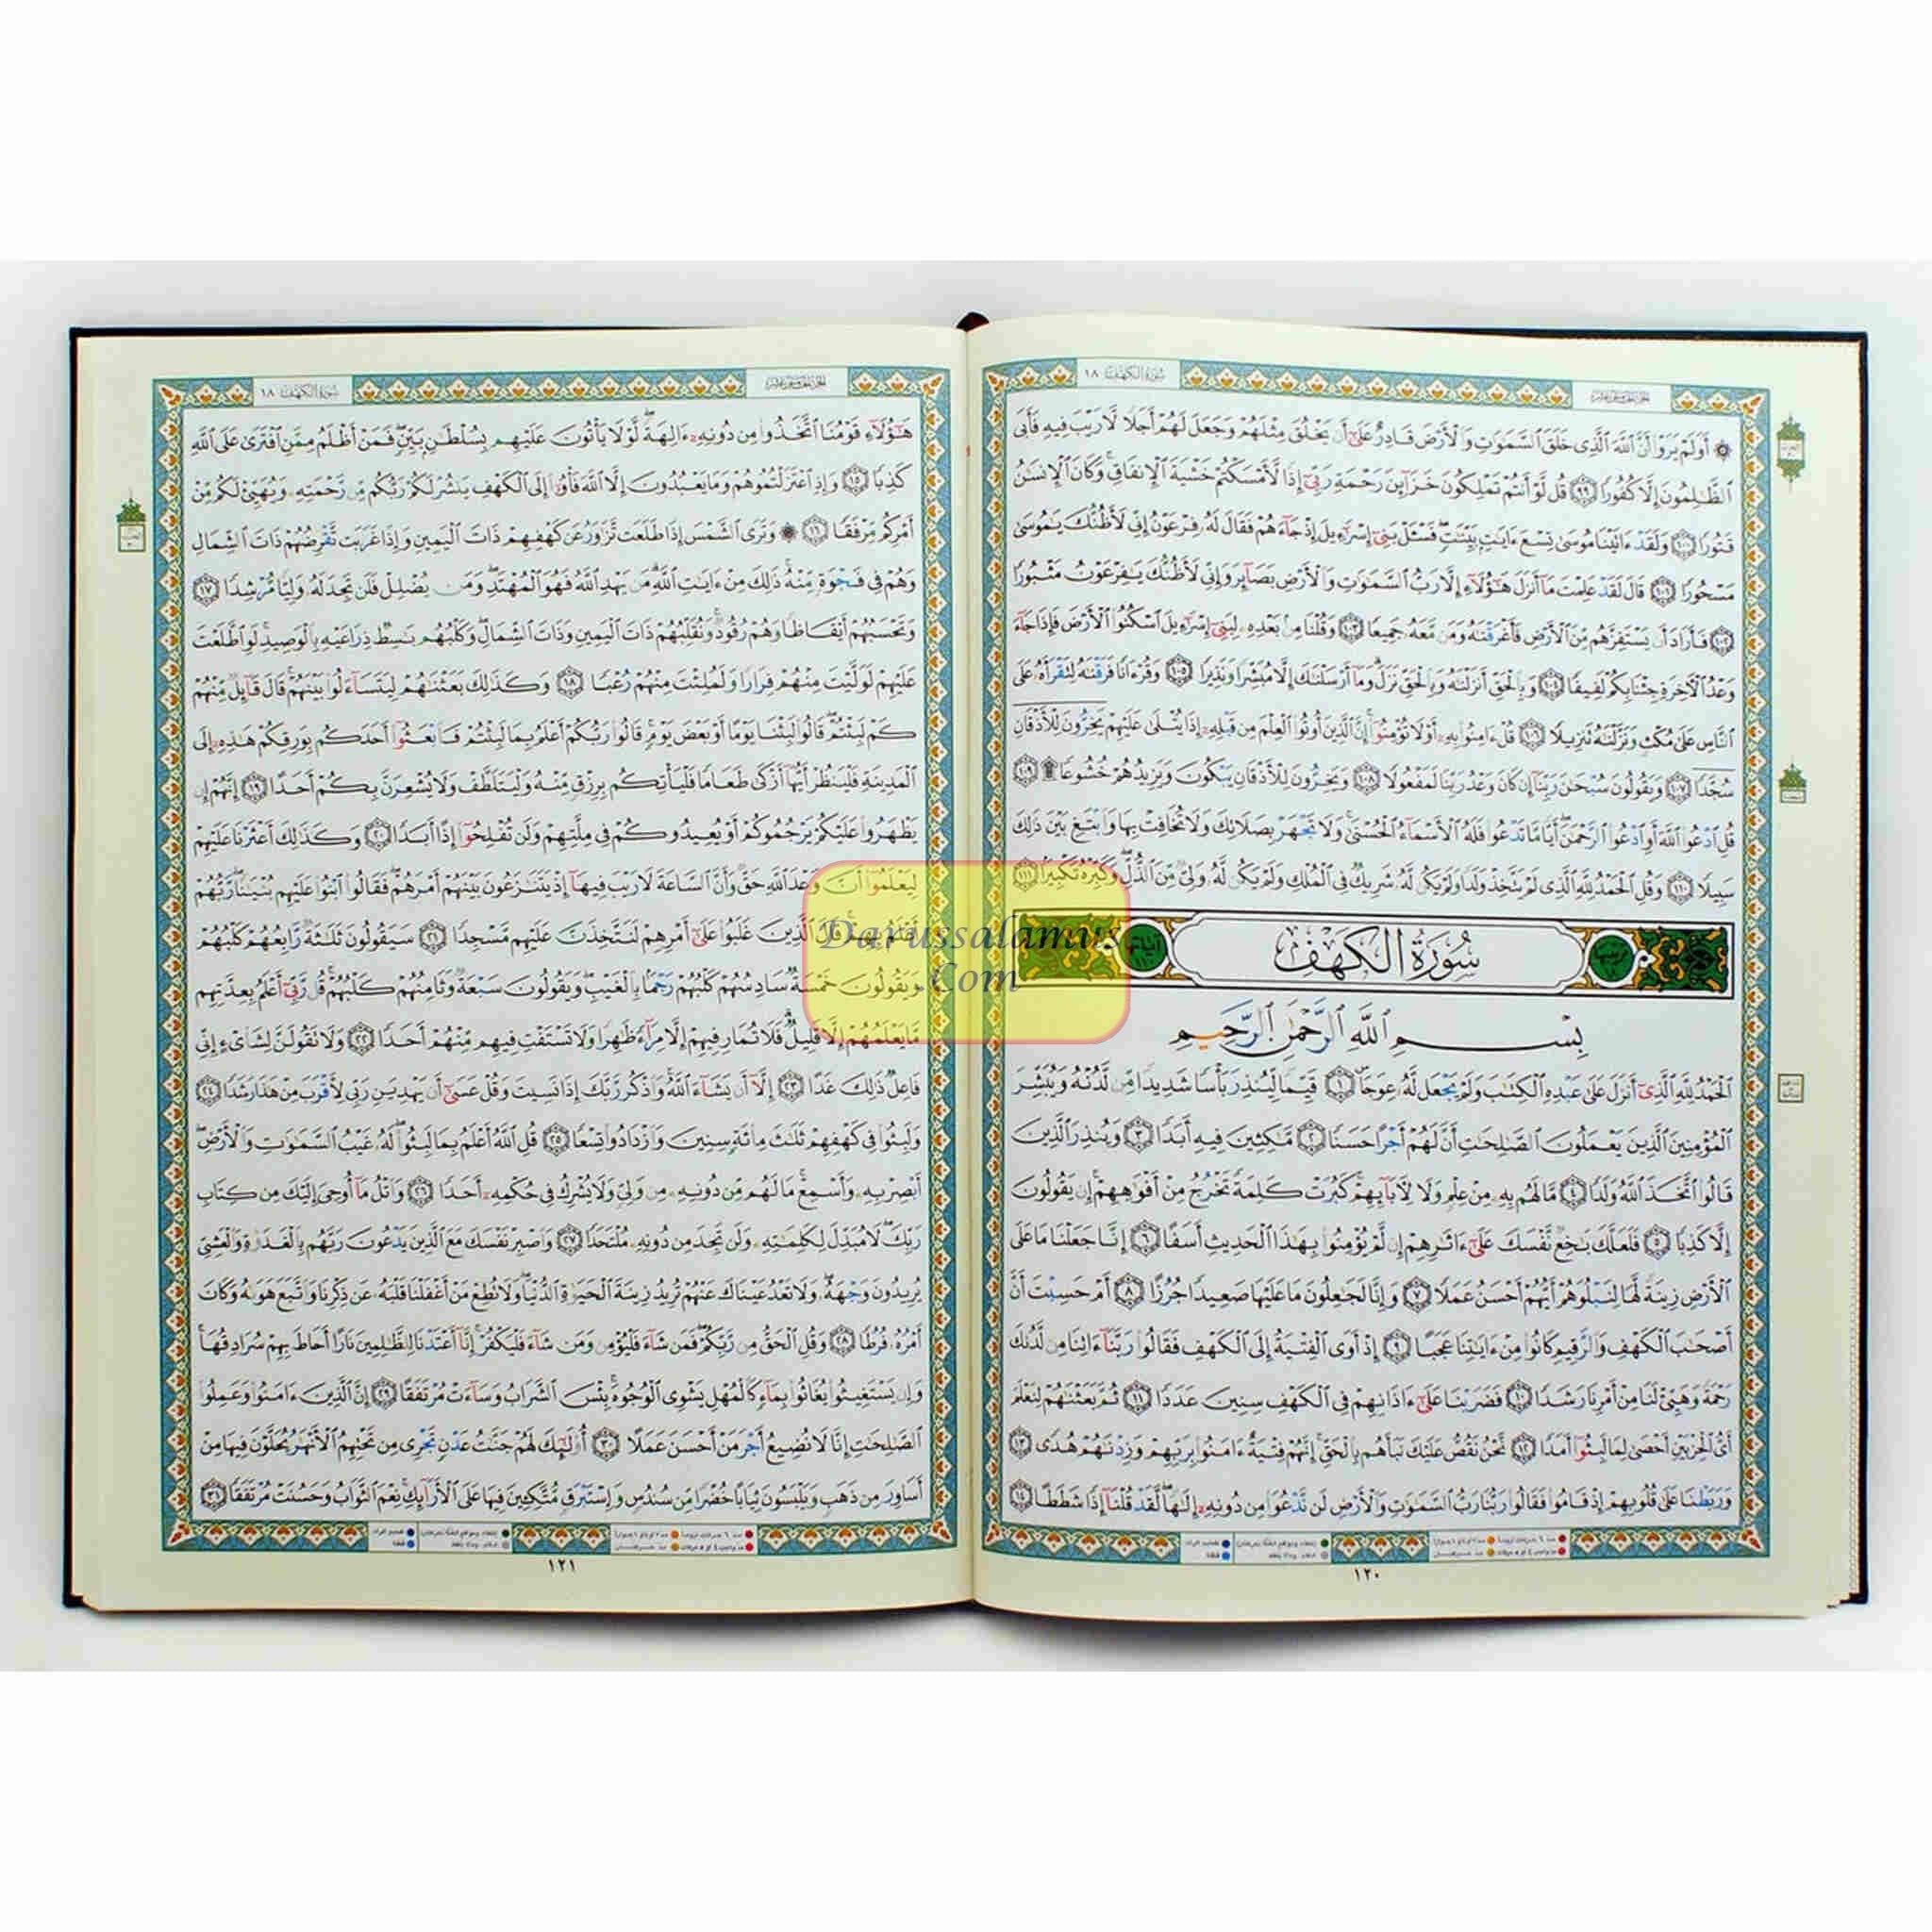 سُورَةُ الكَهْف ١٨
۞ أَوَلَمْ يَرَوْا أَنَّ ٱللَّهَ ٱلَّذِى خَلَقَ ٱلسَّمَٰوَٰتِ وَٱلْأَرْضَ قَادِرٌ عَلَىٰٓ أَن يَخْلُقَ مِثْلَهُمْ وَجَعَلَ لَهُمْ أَجَلًا لَّا رَيْبَ فِيهِ فَأَبَى
ٱلظَّٰلِمُونَ إِلَّا كُفُورًا ٩٩ قُل لَّوْ أَنتُمْ تَمْلِكُونَ خَزَآئِنَ رَحْمَةِ رَبِّىٓ إِذًا لَّأَمْسَكْتُمْ خَشْيَةَ ٱلْإِنفَاقِ ۚ وَكَانَ ٱلْإِنسَٰنُ
قَتُورًا ١٠٠ وَلَقَدْ ءَاتَيْنَا مُوسَىٰ تِسْعَ ءَايَٰتٍۭ بَيِّنَٰتٍ ۖ فَسْـَٔلْ بَنِىٓ إِسْرَٰٓءِيلَ إِذْ جَآءَهُمْ فَقَالَ لَهُۥ فِرْعَوْنُ إِنِّى لَأَظُنُّكَ يَٰمُوسَىٰ
مَسْحُورًا ١٠١ قَالَ لَقَدْ عَلِمْتَ مَآ أَنزَلَ هَٰٓؤُلَآءِ إِلَّا رَبُّ ٱلسَّمَٰوَٰتِ وَٱلْأَرْضِ بَصَآئِرَ وَإِنِّى لَأَظُنُّكَ يَٰفِرْعَوْنُ مَثْبُورًا
١٠٢ فَأَرَادَ أَن يَسْتَفِزَّهُم مِّنَ ٱلْأَرْضِ فَأَغْرَقْنَٰهُ وَمَن مَّعَهُۥ جَمِيعًا ١٠٣ وَقُلْنَا مِنۢ بَعْدِهِۦ لِبَنِىٓ إِسْرَٰٓءِيلَ ٱسْكُنُوا۟ ٱلْأَرْضَ فَإِذَا جَآءَ
وَعْدُ ٱلْءَاخِرَةِ جِئْنَا بِكُمْ لَفِيفًا ١٠٤ وَبِٱلْحَقِّ أَنزَلْنَٰهُ وَبِٱلْحَقِّ نَزَلَ ۗ وَمَآ أَرْسَلْنَٰكَ إِلَّا مُبَشِّرًا وَنَذِيرًا ١٠٥ وَقُرْءَانًا فَرَقْنَٰهُ لِتَقْرَأَهُۥ عَلَى
ٱلنَّاسِ عَلَىٰ مُكْثٍ وَنَزَّلْنَٰهُ تَنزِيلًا ١٠٦ قُلْ ءَامِنُوا۟ بِهِۦٓ أَوْ لَا تُؤْمِنُوٓا۟ ۚ إِنَّ ٱلَّذِينَ أُوتُوا۟ ٱلْعِلْمَ مِن قَبْلِهِۦٓ إِذَا يُتْلَىٰ عَلَيْهِمْ يَخِرُّونَ لِلْأَذْقَانِ
سُجَّدًا ١٠٧ وَيَقُولُونَ سُبْحَٰنَ رَبِّنَآ إِن كَانَ وَعْدُ رَبِّنَا لَمَفْعُولًا ١٠٨ وَيَخِرُّونَ لِلْأَذْقَانِ يَبْكُونَ وَيَزِيدُهُمْ خُشُوعًا ۩ ١٠٩
قُلِ ٱدْعُوا۟ ٱللَّهَ أَوِ ٱدْعُوا۟ ٱلرَّحْمَٰنَ ۖ أَيًّا مَّا تَدْعُوا۟ فَلَهُ ٱلْأَسْمَآءُ ٱلْحُسْنَىٰ ۚ وَلَا تَجْهَرْ بِصَلَاتِكَ وَلَا تُخَافِتْ بِهَا وَٱبْتَغِ بَيْنَ ذَٰلِكَ
سَبِيلًا ١١٠ وَقُلِ ٱلْحَمْدُ لِلَّهِ ٱلَّذِى لَمْ يَتَّخِذْ وَلَدًا وَلَمْ يَكُن لَّهُۥ شَرِيكٌ فِى ٱلْمُلْكِ وَلَمْ يَكُن لَّهُۥ وَلِىٌّ مِّنَ ٱلذُّلِّ ۖ وَكَبِّرْهُ تَكْبِيرًۢا ١١١
سُورَةُ الكَهْفِ
بِسْمِ ٱللَّهِ ٱلرَّحْمَٰنِ ٱلرَّحِيمِ
ٱلْحَمْدُ لِلَّهِ ٱلَّذِىٓ أَنزَلَ عَلَىٰ عَبْدِهِ ٱلْكِتَٰبَ وَلَمْ يَجْعَل لَّهُۥ عِوَجَا ۜ ١ قَيِّمًا لِّيُنذِرَ بَأْسًا شَدِيدًا مِّن لَّدُنْهُ وَيُبَشِّرَ
ٱلْمُؤْمِنِينَ ٱلَّذِينَ يَعْمَلُونَ ٱلصَّٰلِحَٰتِ أَنَّ لَهُمْ أَجْرًا حَسَنًا ٢ مَّٰكِثِينَ فِيهِ أَبَدًا ٣ وَيُنذِرَ ٱلَّذِينَ
قَالُوا۟ ٱتَّخَذَ ٱللَّهُ وَلَدًا ٤ مَّا لَهُم بِهِۦ مِنْ عِلْمٍ وَلَا لِءَابَآئِهِمْ ۚ كَبُرَتْ كَلِمَةً تَخْرُجُ مِنْ أَفْوَٰهِهِمْ ۚ إِن يَقُولُونَ
إِلَّا كَذِبًا ٥ فَلَعَلَّكَ بَٰخِعٌ نَّفْسَكَ عَلَىٰٓ ءَاثَٰرِهِمْ إِن لَّمْ يُؤْمِنُوا۟ بِهَٰذَا ٱلْحَدِيثِ أَسَفًا ٦ إِنَّا جَعَلْنَا مَا عَلَى
ٱلْأَرْضِ زِينَةً لَّهَا لِنَبْلُوَهُمْ أَيُّهُمْ أَحْسَنُ عَمَلًا ٧ وَإِنَّا لَجَٰعِلُونَ مَا عَلَيْهَا صَعِيدًا جُرُزًا ٨ أَمْ حَسِبْتَ أَنَّ
أَصْحَٰبَ ٱلْكَهْفِ وَٱلرَّقِيمِ كَانُوا۟ مِنْ ءَايَٰتِنَا عَجَبًا ٩ إِذْ أَوَى ٱلْفِتْيَةُ إِلَى ٱلْكَهْفِ فَقَالُوا۟ رَبَّنَآ ءَاتِنَا مِن لَّدُنكَ
رَحْمَةً وَهَيِّئْ لَنَا مِنْ أَمْرِنَا رَشَدًا ١٠ فَضَرَبْنَا عَلَىٰٓ ءَاذَانِهِمْ فِى ٱلْكَهْفِ سِنِينَ عَدَدًا ١١ ثُمَّ بَعَثْنَٰهُمْ لِنَعْلَمَ
أَىُّ ٱلْحِزْبَيْنِ أَحْصَىٰ لِمَا لَبِثُوٓا۟ أَمَدًا ١٢ نَّحْنُ نَقُصُّ عَلَيْكَ نَبَأَهُم بِٱلْحَقِّ ۚ إِنَّهُمْ فِتْيَةٌ ءَامَنُوا۟ بِرَبِّهِمْ وَزِدْنَٰهُمْ هُدًى ١٣
وَرَبَطْنَا عَلَىٰ قُلُوبِهِمْ إِذْ قَامُوا۟ فَقَالُوا۟ رَبُّنَا رَبُّ ٱلسَّمَٰوَٰتِ وَٱلْأَرْضِ لَن نَّدْعُوَا۟ مِن دُونِهِۦٓ إِلَٰهًا ۖ لَّقَدْ قُلْنَآ إِذًا شَطَطًا ١٤
١٢٠
سُورَةُ الكَهْف ١٨
هَٰٓؤُلَآءِ قَوْمُنَا ٱتَّخَذُوا۟ مِن دُونِهِۦٓ ءَالِهَةً ۖ لَّوْلَا يَأْتُونَ عَلَيْهِم بِسُلْطَٰنٍۭ بَيِّنٍ ۖ فَمَنْ أَظْلَمُ مِمَّنِ ٱفْتَرَىٰ عَلَى ٱللَّهِ
كَذِبًا ١٥ وَإِذِ ٱعْتَزَلْتُمُوهُمْ وَمَا يَعْبُدُونَ إِلَّا ٱللَّهَ فَأْوُۥٓا۟ إِلَى ٱلْكَهْفِ يَنشُرْ لَكُمْ رَبُّكُم مِّن رَّحْمَتِهِۦ وَيُهَيِّئْ لَكُم مِّنْ
أَمْرِكُم مِّرْفَقًا ١٦ ۞ وَتَرَى ٱلشَّمْسَ إِذَا طَلَعَت تَّزَٰوَرُ عَن كَهْفِهِمْ ذَاتَ ٱلْيَمِينِ وَإِذَا غَرَبَت تَّقْرِضُهُمْ ذَاتَ ٱلشِّمَالِ
وَهُمْ فِى فَجْوَةٍ مِّنْهُ ۚ ذَٰلِكَ مِنْ ءَايَٰتِ ٱللَّهِ ۗ مَن يَهْدِ ٱللَّهُ فَهُوَ ٱلْمُهْتَدِ ۖ وَمَن يُضْلِلْ فَلَن تَجِدَ لَهُۥ وَلِيًّا مُّرْشِدًا ١٧
وَتَحْسَبُهُمْ أَيْقَاظًا وَهُمْ رُقُودٌ ۚ وَنُقَلِّبُهُمْ ذَاتَ ٱلْيَمِينِ وَذَاتَ ٱلشِّمَالِ ۖ وَكَلْبُهُم بَٰسِطٌ ذِرَاعَيْهِ بِٱلْوَصِيدِ ۚ لَوِ ٱطَّلَعْتَ
عَلَيْهِمْ لَوَلَّيْتَ مِنْهُمْ فِرَارًا وَلَمُلِئْتَ مِنْهُمْ رُعْبًا ١٨ وَكَذَٰلِكَ بَعَثْنَٰهُمْ لِيَتَسَآءَلُوا۟ بَيْنَهُمْ ۚ قَالَ قَآئِلٌ مِّنْهُمْ
كَمْ لَبِثْتُمْ ۖ قَالُوا۟ لَبِثْنَا يَوْمًا أَوْ بَعْضَ يَوْمٍ ۚ قَالُوا۟ رَبُّكُمْ أَعْلَمُ بِمَا لَبِثْتُمْ فَٱبْعَثُوٓا۟ أَحَدَكُم بِوَرِقِكُمْ هَٰذِهِۦٓ إِلَى
ٱلْمَدِينَةِ فَلْيَنظُرْ أَيُّهَآ أَزْكَىٰ طَعَامًا فَلْيَأْتِكُم بِرِزْقٍ مِّنْهُ وَلْيَتَلَطَّفْ وَلَا يُشْعِرَنَّ بِكُمْ أَحَدًا ١٩ إِنَّهُمْ إِن
يَظْهَرُوا۟ عَلَيْكُمْ يَرْجُمُوكُمْ أَوْ يُعِيدُوكُمْ فِى مِلَّتِهِمْ وَلَن تُفْلِحُوٓا۟ إِذًا أَبَدًا ٢٠ وَكَذَٰلِكَ أَعْثَرْنَا عَلَيْهِمْ
لِيَعْلَمُوٓا۟ أَنَّ وَعْدَ ٱللَّهِ حَقٌّ وَأَنَّ ٱلسَّاعَةَ لَا رَيْبَ فِيهَآ إِذْ يَتَنَٰزَعُونَ بَيْنَهُمْ أَمْرَهُمْ ۖ فَقَالُوا۟ ٱبْنُوا۟ عَلَيْهِم بُنْيَٰنًا ۖ رَّبُّهُمْ
أَعْلَمُ بِهِمْ ۚ قَالَ ٱلَّذِينَ غَلَبُوا۟ عَلَىٰٓ أَمْرِهِمْ لَنَتَّخِذَنَّ عَلَيْهِم مَّسْجِدًا ٢١ سَيَقُولُونَ ثَلَٰثَةٌ رَّابِعُهُمْ كَلْبُهُمْ
وَيَقُولُونَ خَمْسَةٌ سَادِسُهُمْ كَلْبُهُمْ رَجْمًۢا بِٱلْغَيْبِ ۖ وَيَقُولُونَ سَبْعَةٌ وَثَامِنُهُمْ كَلْبُهُمْ ۚ قُل رَّبِّىٓ أَعْلَمُ بِعِدَّتِهِم
مَّا يَعْلَمُهُمْ إِلَّا قَلِيلٌ ۗ فَلَا تُمَارِ فِيهِمْ إِلَّا مِرَآءً ظَٰهِرًا وَلَا تَسْتَفْتِ فِيهِم مِّنْهُمْ أَحَدًا ٢٢ وَلَا تَقُولَنَّ لِشَا۟ىْءٍ إِنِّى
فَاعِلٌ ذَٰلِكَ غَدًا ٢٣ إِلَّآ أَن يَشَآءَ ٱللَّهُ ۚ وَٱذْكُر رَّبَّكَ إِذَا نَسِيتَ وَقُلْ عَسَىٰٓ أَن يَهْدِيَنِ رَبِّى لِأَقْرَبَ مِنْ هَٰذَا رَشَدًا ٢٤
وَلَبِثُوا۟ فِى كَهْفِهِمْ ثَلَٰثَ مِا۟ئَةٍ سِنِينَ وَٱزْدَادُوا۟ تِسْعًا ٢٥ قُلِ ٱللَّهُ أَعْلَمُ بِمَا لَبِثُوا۟ ۖ لَهُۥ غَيْبُ ٱلسَّمَٰوَٰتِ وَٱلْأَرْضِ ۖ
أَبْصِرْ بِهِۦ وَأَسْمِعْ ۚ مَا لَهُم مِّن دُونِهِۦ مِن وَلِىٍّ وَلَا يُشْرِكُ فِى حُكْمِهِۦٓ أَحَدًا ٢٦ وَٱتْلُ مَآ أُوحِىَ إِلَيْكَ مِن كِتَابِ
رَبِّكَ ۖ لَا مُبَدِّلَ لِكَلِمَٰتِهِۦ وَلَن تَجِدَ مِن دُونِهِۦ مُلْتَحَدًا ٢٧ وَٱصْبِرْ نَفْسَكَ مَعَ ٱلَّذِينَ يَدْعُونَ رَبَّهُم بِٱلْغَدَوٰةِ وَٱلْعَشِىِّ
يُرِيدُونَ وَجْهَهُۥ ۖ وَلَا تَعْدُ عَيْنَاكَ عَنْهُمْ تُرِيدُ زِينَةَ ٱلْحَيَوٰةِ ٱلدُّنْيَا ۖ وَلَا تُطِعْ مَنْ أَغْفَلْنَا قَلْبَهُۥ عَن ذِكْرِنَا وَٱتَّبَعَ هَوَىٰهُ وَكَانَ
أَمْرُهُۥ فُرُطًا ٢٨ وَقُلِ ٱلْحَقُّ مِن رَّبِّكُمْ ۖ فَمَن شَآءَ فَلْيُؤْمِن وَمَن شَآءَ فَلْيَكْفُرْ ۚ إِنَّآ أَعْتَدْنَا لِلظَّٰلِمِينَ نَارًا أَحَاطَ بِهِمْ سُرَادِقُهَا ۚ
وَإِن يَسْتَغِيثُوا۟ يُغَاثُوا۟ بِمَآءٍ كَٱلْمُهْلِ يَشْوِى ٱلْوُجُوهَ ۚ بِئْسَ ٱلشَّرَابُ وَسَآءَتْ مُرْتَفَقًا ٢٩ إِنَّ ٱلَّذِينَ ءَامَنُوا۟ وَعَمِلُوا۟
ٱلصَّٰلِحَٰتِ إِنَّا لَا نُضِيعُ أَجْرَ مَنْ أَحْسَنَ عَمَلًا ٣٠ أُو۟لَٰٓئِكَ لَهُمْ جَنَّٰتُ عَدْنٍ تَجْرِى مِن تَحْتِهِمُ ٱلْأَنْهَٰرُ يُحَلَّوْنَ فِيهَا مِنْ
أَسَاوِرَ مِن ذَهَبٍ وَيَلْبَسُونَ ثِيَابًا خُضْرًا مِّن سُندُسٍ وَإِسْتَبْرَقٍ مُّتَّكِـِٔينَ فِيهَا عَلَى ٱلْأَرَآئِكِ ۚ نِعْمَ ٱلثَّوَابُ وَحَسُنَتْ مُرْتَفَقًا ٣١
١٢١
Darussalamus
.Com